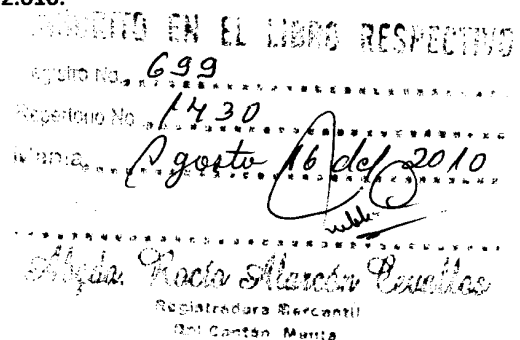 2.010.
INSCRITO EN EL LIBRO RESPECTIVO
Registro No. 699
Repertorio No. 1430
Manta, Agosto 16 del 2010
Abgda. Rocío Alarcón Cevallos
Registradora Mercantil
Del Cantón Manta